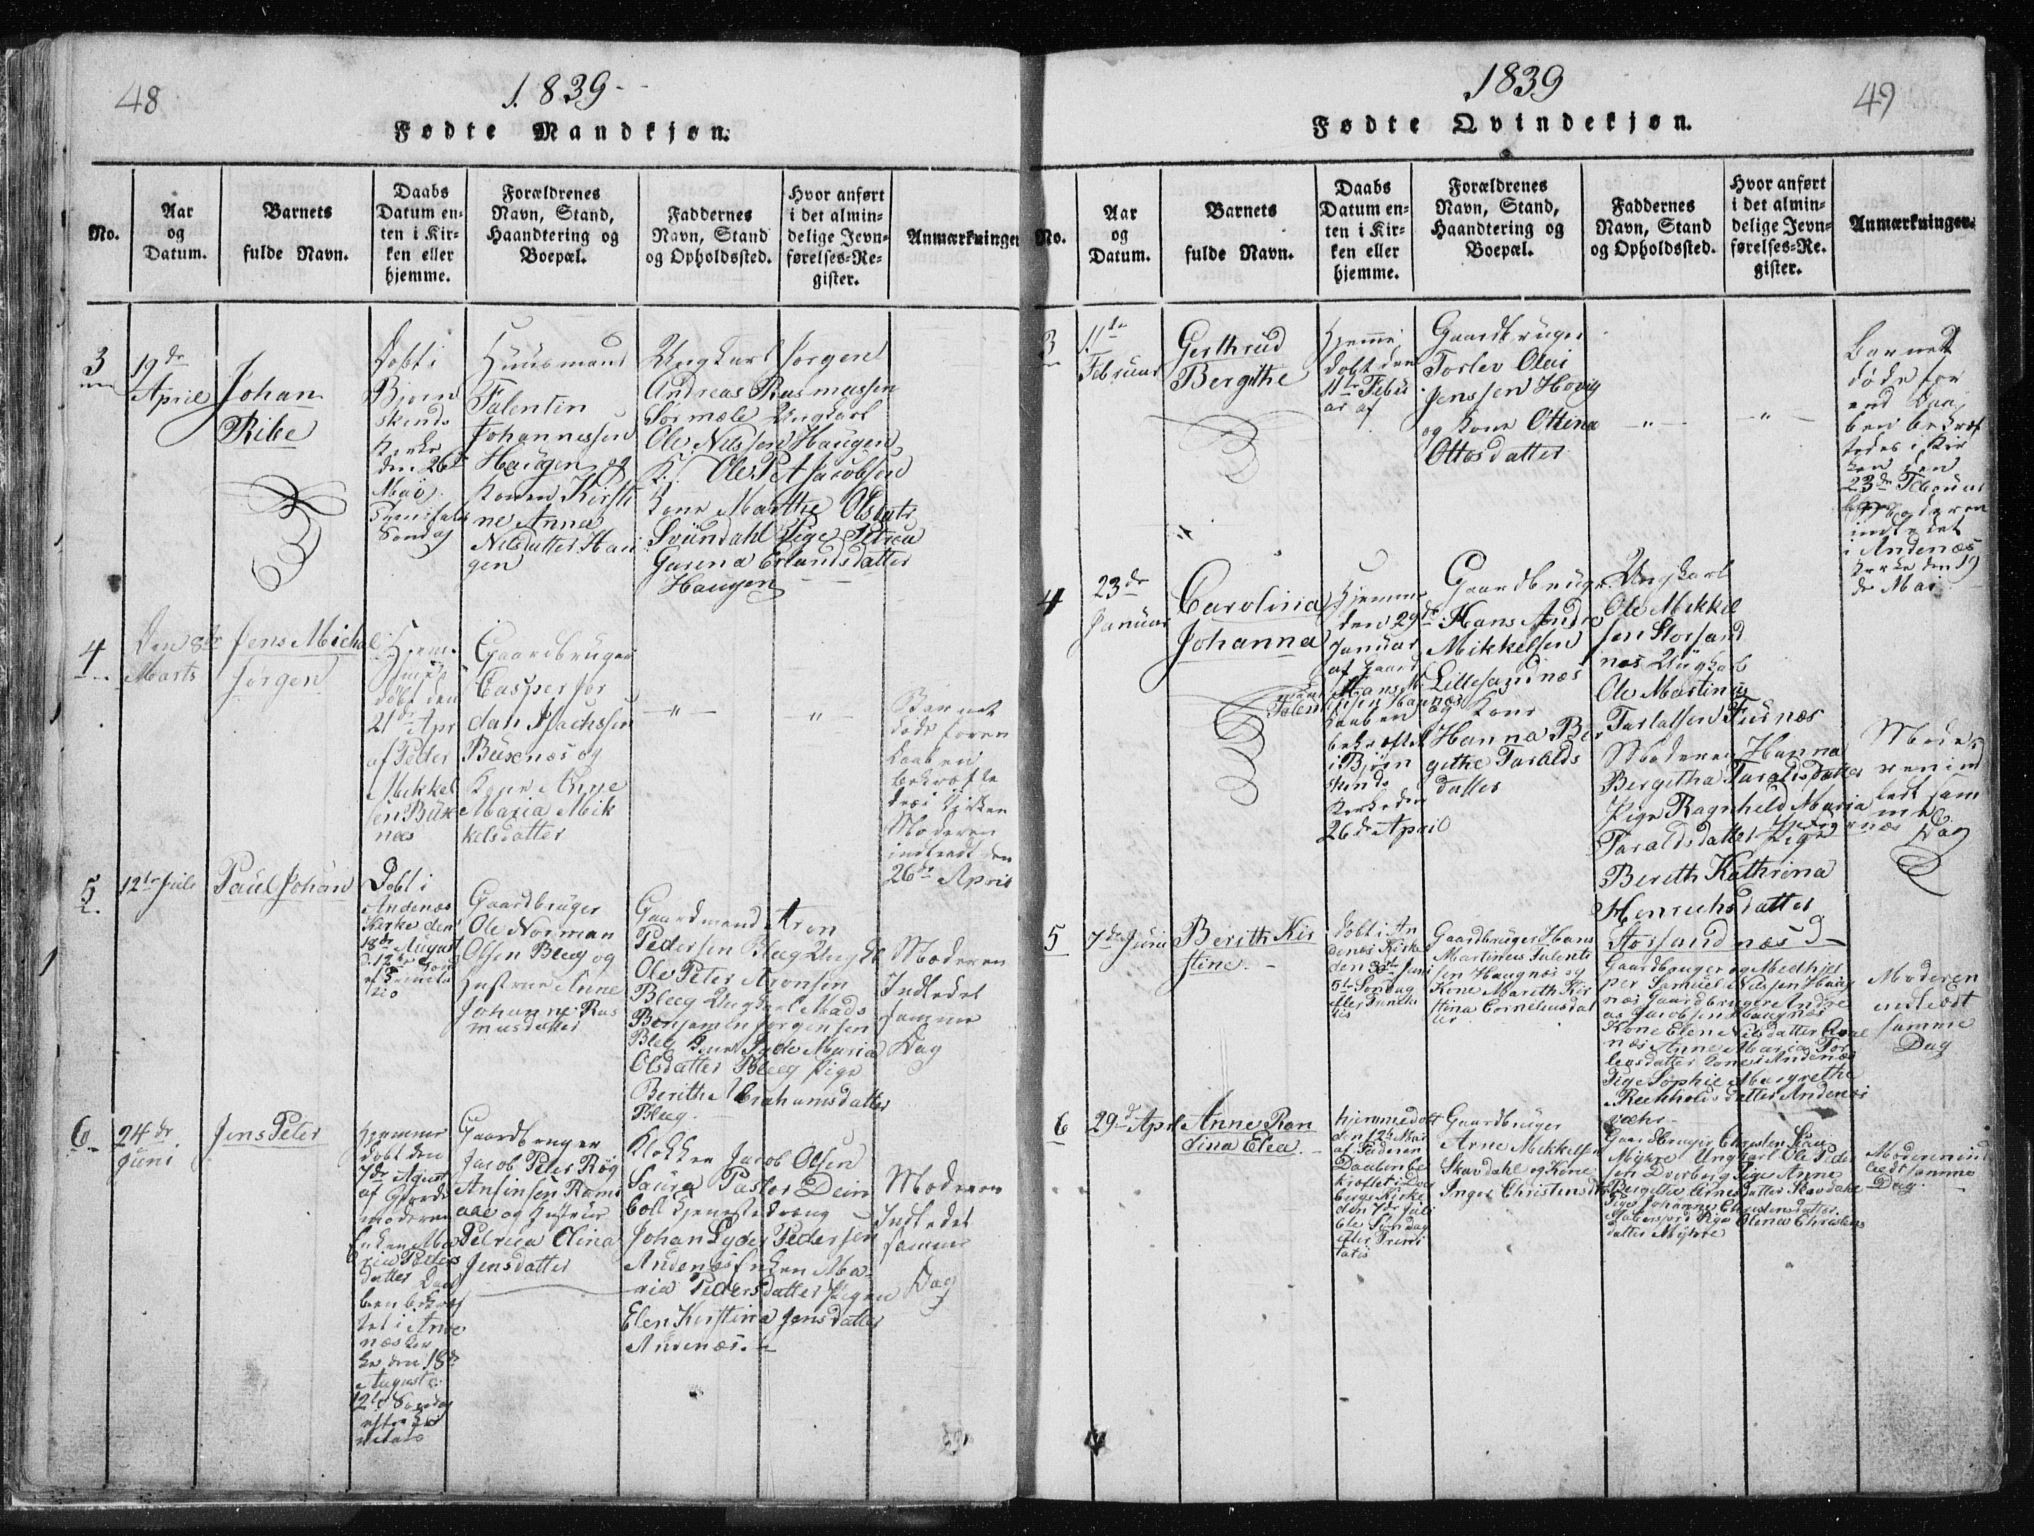 48
1839
Fødte Mandkjøn.
No.
Aar
og
Datum.
Barnets
fulde Navn.
Daabs
Datum en-
ten i Kir-
ken eller
hjemme.
Forældrenes
Navn, Stand,
Haandtering og
Boepæl.
Faddernes
Navn, Stand
og Opholdssted.
Hvor anført
i det almin-
delige Jevn-
førelses-Re-
gister.
Anmærkninger
3
19de
April
Johan
Ribe
Døbt i
Bjørn
skinds
Kirke
den 26d
Mai
Søndag
Huusmand
Falentin
Johannessen
Haugen og
Konen Kirsti
ne Anna
Nilsdatter Hau
gen
Ungkarl Jørgen
Andreas Rasmussen
Sørmele Ungkarl
Ole Nilssen Haugen
K. Ole Pet Jacobsen
Kone Marthe Olsdatr
Svündahl Pige Petrea
Garena Erlandsdatter
Haugen
4
Den 8de
Marts
Jens Michal
Jørgen
Hjem
døbt den
21de Apr
af Peder
Mikkel
sen Büxe
næs
Gaardbruger
Casper Jør
dan Isachssen
Büxenæs og
Kone Anne
Maria Mik
kelsdatter
— " —
" —
Barnet
døde foren
Daaben
bekræfte
des i Kirken
Moderen
indledt den
26de April
5
12te Juli
Paul Johan
Døbt i
Andenæs
Kirke den
18de August
12te Sønd
ef Trinita
tio
Gaardbruger
Ole Norman
Olsen Bleeg og
Hustrue Anne
Johanne Ras
musdatter
Gaardmand Aron
Pedersen Bleeg Ungk
Ole Peter Aronsen
Bleeg Ungkarl Mads
Benjamin Jørgensen
Bleg Kone Inde Maria
Olsdatter Bleeg Pige
Berithe Abrahamsdatter
Bleeg
Moderen
Indledet
samme
Dag
6
24de
Juni
Jens Peter
Hjemme
døbt den
7de August
af Giorde
moderen
Enken Ma
ria Peders
datter Daa
ben bekræf
tet i Ande
næs Kir
ke den 18de
August
12te Søndag
efter Tri
nitatis
Gaardbruger
Jacob Peter Røg
Ansinsen Rams
aae og Hustrue
Petrica Elina
Jensdatter
Klokker Jacob Olsen
Saura Pastor Dein
boll tjenestedreng
Johan Lyder Pedersen
Andenæs Enken Ma
ria Pedersdatter Pigen
Elen Kirstina Jensdatter
Andenæs.
Moderen
Indledet
samme
Dag
49
1839
Fødte Qvindekjøn.
No.
Aar
og
Datum.
Barnets
fulde Navn.
Daabs
Datum en-
ten i Kir-
ken eller
hjemme.
Forældrenes
Navn, Stand,
Haandtering og
Boepæl.
Faddernes
Navn, Stand
og Opholdssted.
Hvor anført
i det almin-
delige Jevn-
førelses-Re-
gister.
Anmærkninger.
3
11te
Februar
Gerthrud
Bergithe
Hjemme
døbt den
11te Febru
ar af
Gaardbruger
Torlev Olai
Jenssen Hovig
og Kone Ottina
Ottosdatter
— " —
— " —
Barnet
døde før
end Daa
ben bekræf
tedes i Kir
ken den
23de Februar
Moderen
indledet
i Andenæs
Kirke den 19
de Mai
4
23de
Januar
Carolina
Johanna
Hjemme
den 29de
Januar
af Gaard
mand Hans
Falentinsen Haugnæs
Daaben
bekræftet
i Bjørn
skinds
Kirke den
26de April
Gaardbruger
Hans Andr
Mikkelsen
Lillesandnæs
og Kone
Hanna Ber
gethe Taralds
datter
Ungkarl
Ole Mikkel
sen Storsand
næs Ungkarl
Ole Martinus
Tarlalsen Fürnæs
Moderen Hanna
Bergitha Taraldsdatter
Pige Ragnheld Maria
Taraldsdatter Pige
Bereth Kathrina
Henrichsdatter
Storsandnæs
Mode
ren ind
ledt sam
me
Dag
5
7de Juni
Berith Kir
stine
døbt i An
denæs Kirke
den 30te Juni
5te Søndag
efter Trinita
tis
Gaardbruger Hans
Martinus Falenti
sen Haugnæs og
Kone Mareth Kir
stina Corneliusdat
ter
Gaardbruger og Medhjel
per Samuel Nilsen Haug
næs Gaardbruger Andre
as Jacobsen Haugnæs
Kone Elen Nilsdatter Qval
næs Anne Maria Tor
leesdatter Kone Andenæs
Pige Sophie Margrethe
Reehholdsdatter Andenæs
væhr
Moderen
indledt
samme
Dag
6
29de Apr
Anne Ran
dina Elea
hjemmedøbt
den 12te Mai
af Faderen
Daaben be
kræftet i Dver
bergs Kirke
den 7de Juli
6te Søndag
efter Trini
tatis
Gaardbruger
Arne Mikkelsen
Skavdahl og Kone
Inger Christensdtr
Gaardbruger Christen
Myhre Ungkarl Ole Peder
sen Dverberg Pige Anne
Bergitte Arnesdatter Skavdahl
Pige Johanne Christensdatter
Pige Olena Christens
datter Myhre
Moderen ind
ledt samme
Dag.